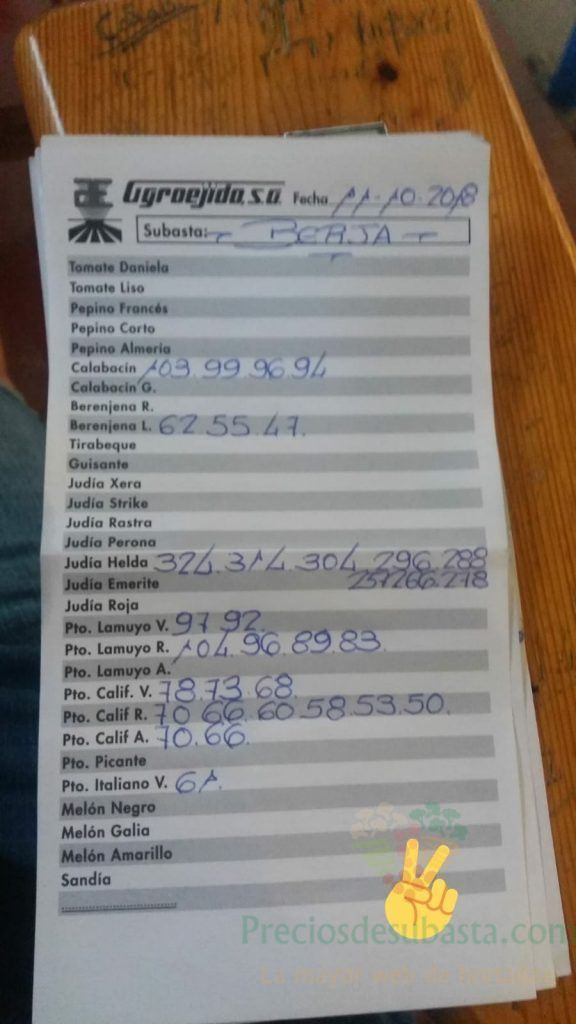 Agroejido, s.a. Fecha 11-10-2018
Subasta: - BERJA -
Tomate Daniela
Tomate Liso
Pepino Francés
Pepino Corto
Pepino Almería
Calabacín 103.99.96.94
Calabacín G.
Berenjena R.
Berenjena L. 62.55.47.
Tirabeque
Guisante
Judía Xera
Judía Strike
Judía Rastra
Judía Perona
Judía Helda 324.314.304.296.288
Judía Emerite 257.266.278
Judía Roja
Pto. Lamuyo V. 97.92.
Pto. Lamuyo R. 104.96.89.83.
Pto. Lamuyo A.
Pto. Calif. V. 78.73.68.
Pto. Calif R. 70.66.60.58.53.50.
Pto. Calif A. 70.66.
Pto. Picante
Pto. Italiano V. 61.
Melón Negro
Melón Galia
Melón Amarillo
Sandía
Preciosdesubasta.com